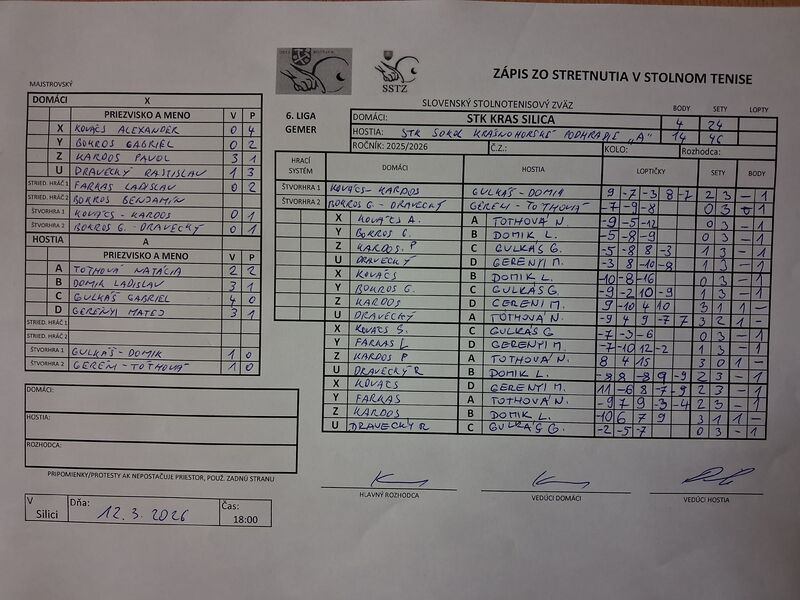 ZÁPIS ZO STRETNUTIA V STOLNOM TENISE
SSTZ
MAJSTROVSKÝ
DOMÁCI X
PRIEZVISKO A MENO V P
X KOVÁCS ALEXANDER 0 4
Y BORROS GABRIEL 0 2
Z KARDOS PAVOL 3 1
U DRAVECKÝ RASTISLAV 1 3
STRIED. HRÁČ 1 FARKAS LADISLAV 0 2
STRIED. HRÁČ 2 BORROS BENJAMÍN
ŠTVORHRA 1 KOVÁCS - KARDOS 0 1
ŠTVORHRA 2 BORROS G. - DRAVECKÝ 0 1
HOSTIA A
PRIEZVISKO A MENO V P
A TOTHOVÁ NATÁLIA 2 2
B DOMIK LADISLAV 3 1
C GULKÁŠ GABRIEL 4 0
D GERÉNYI MATEJ 3 1
STRIED. HRÁČ 1
STRIED. HRÁČ 2
ŠTVORHRA 1 GULKÁŠ - DOMIK 1 0
ŠTVORHRA 2 GERÉNI - TOTHOVÁ 1 0
DOMÁCI:
HOSTIA:
ROZHODCA:
PRIPOMIENKY/PROTESTY AK NEPOSTAČUJE PRIESTOR, POUŽ. ZADNÚ STRANU
V Silici
Dňa: 12.3.2026
Čas: 18:00
6. LIGA GEMER
SLOVENSKÝ STOLNOTENISOVÝ ZVÄZ BODY SETY LOPTY
DOMÁCI: STK KRAS SILICA 4 24
HOSTIA: STK SOKOL KRÁSNOHORSKÉ PODHRADIE "A" 14 46
ROČNÍK: 2025/2026 Č.Z.: KOLO: Rozhodca:
HRACÍ SYSTÉM DOMÁCI HOSTIA LOPTIČKY SETY BODY
ŠTVORHRA 1 KOVÁCS - KARDOS GULKÁŠ - DOMIK 9 -7 -3 8 -7 2 3 - 1
ŠTVORHRA 2 BORROS G. - DRAVECKÝ GERÉNI - TOTHOVÁ -7 -9 -8 0 3 0 1
X KOVÁCS A. A TOTHOVÁ N. -9 -5 -12 0 3 - 1
Y BORROS G. B DOMIK L. -5 -8 -9 0 3 - 1
Z KARDOS. P C GULKÁŠ G. -5 -8 8 -3 1 3 - 1
U DRAVECKÝ D GERENYI M. -3 8 -10 -8 1 3 - 1
X KOVÁCS B DOMIK L. -10 -8 -16 0 3 - 1
Y BORROS G. C GULKÁŠ G. -9 -2 10 -9 1 3 - 1
Z KARDOS D GERENYI M. 9 -10 4 10 3 1 1 -
U DRAVECKÝ A TOTHOVÁ N. -9 4 9 -7 7 3 2 1 -
X KOVÁCS C GULKÁŠ G -7 -3 -6 0 3 - 1
Y FARKAS L D GERENYI M. -7 -10 12 -2 1 3 - 1
Z KARDOS P A TOTHOVÁ N. 8 4 15 3 0 1 -
U DRAVECKÝ R B DOMIK L. -8 8 -8 9 -9 2 3 - 1
X KOVÁCS D GERENYI M. 11 -6 8 -7 -9 2 3 - 1
Y FARKAS A TOTHOVÁ N. -9 7 9 -3 -4 2 3 - 1
Z KARDOS B DOMIK L. -10 6 7 9 3 1 1 -
U DRAVECKÝ R C GULKÁŠ G. -2 -5 -7 0 3 - 1
HLAVNÝ ROZHODCA VEDÚCI DOMÁCI VEDÚCI HOSTIA